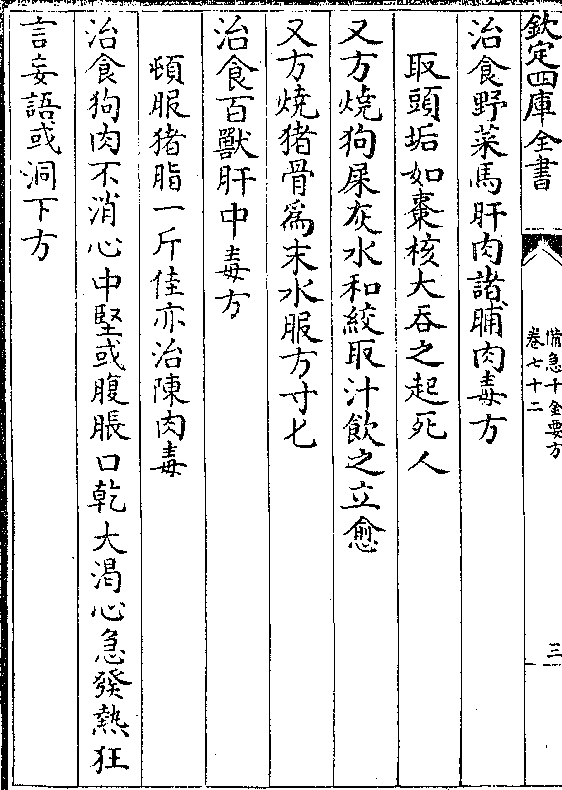 欽定四庫全書
備急千金要方
卷七十二
三
治食野菜馬肝肉諸脯肉毒方
取頭垢如棗核大吞之起死人
又方燒狗屎灰水和絞取汁飲之立愈
又方燒猪骨為末水服方寸匕
治食百獸肝中毒方
頓服猪脂一斤佳亦治陳肉毒
治食狗肉不消心中堅或腹脹口乾大渴心急發熱狂
言妄語或洞下方